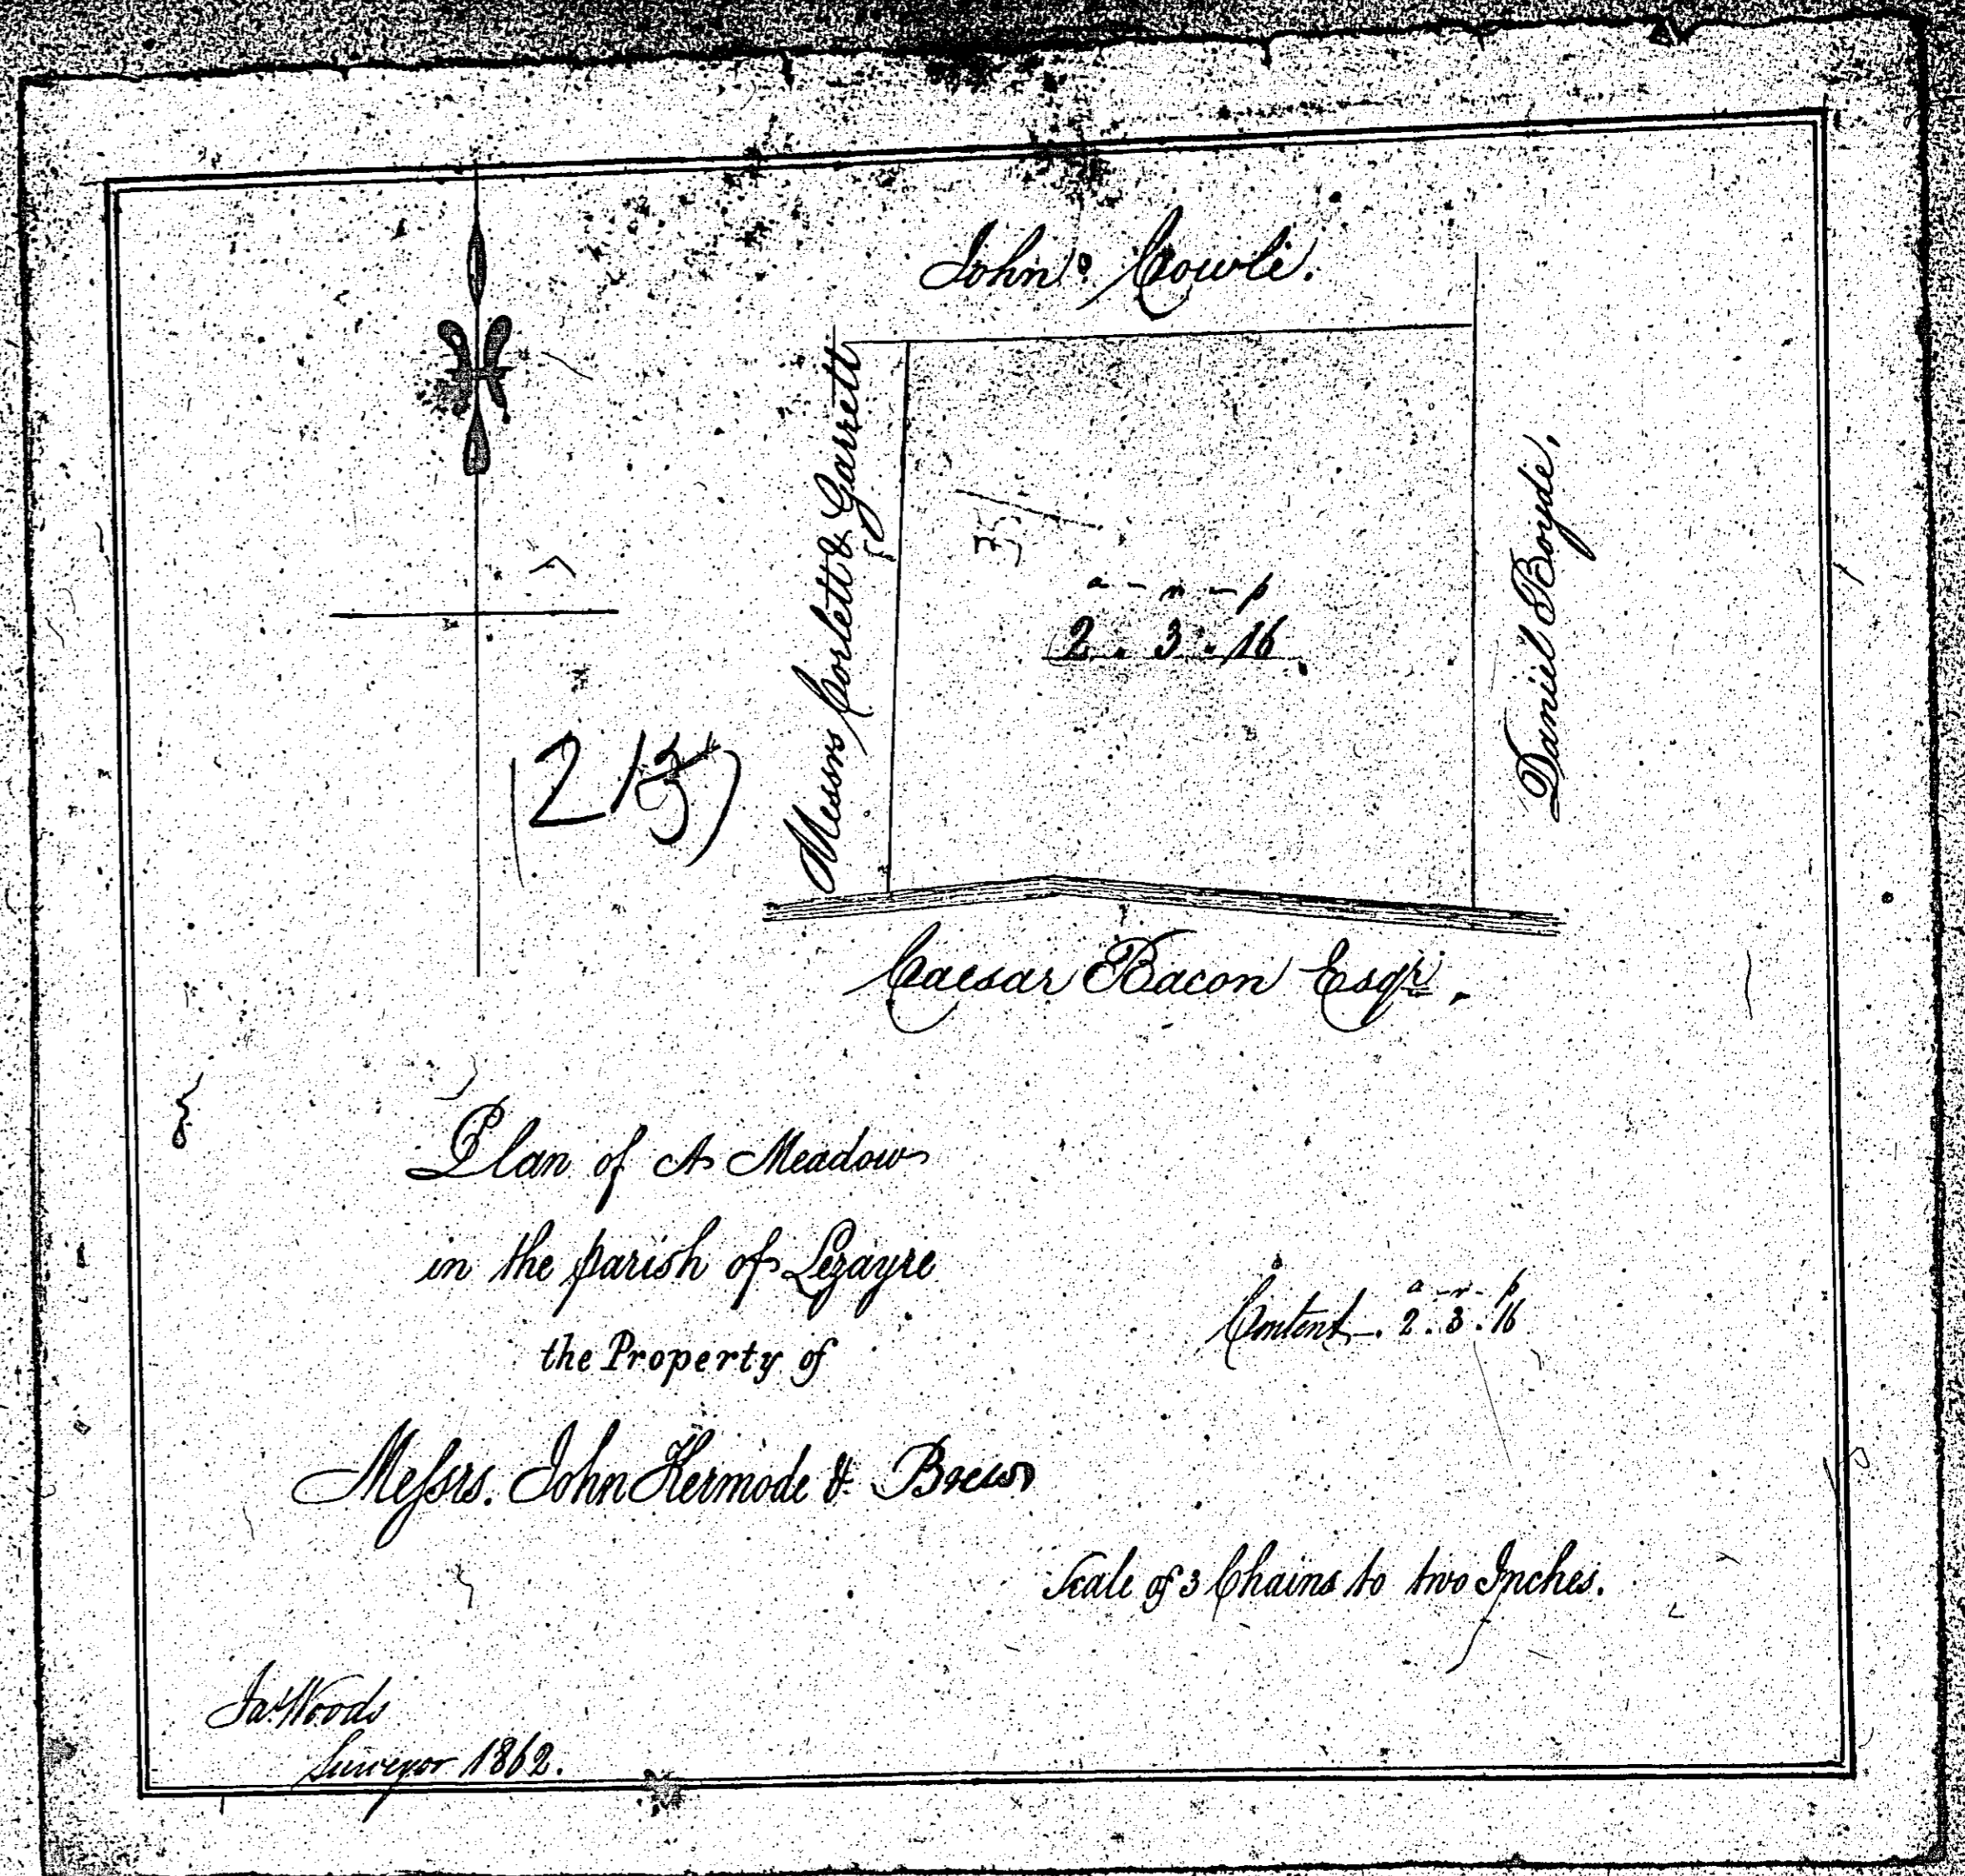 John Cowle.
Messrs Corlett & Garrett
35
a - r - p
2 . 3 . 16
Daniel Boyde.
(213)
Caesar Bacon Esqr.
Plan of A Meadow
in the parish of Lezayre
the Property of
Messrs. John Kermode & Brew
a - r - p
Content . 2 . 3 . 16
Scale of 3 Chains to two Inches.
Jas Woods
Surveyor 1862.